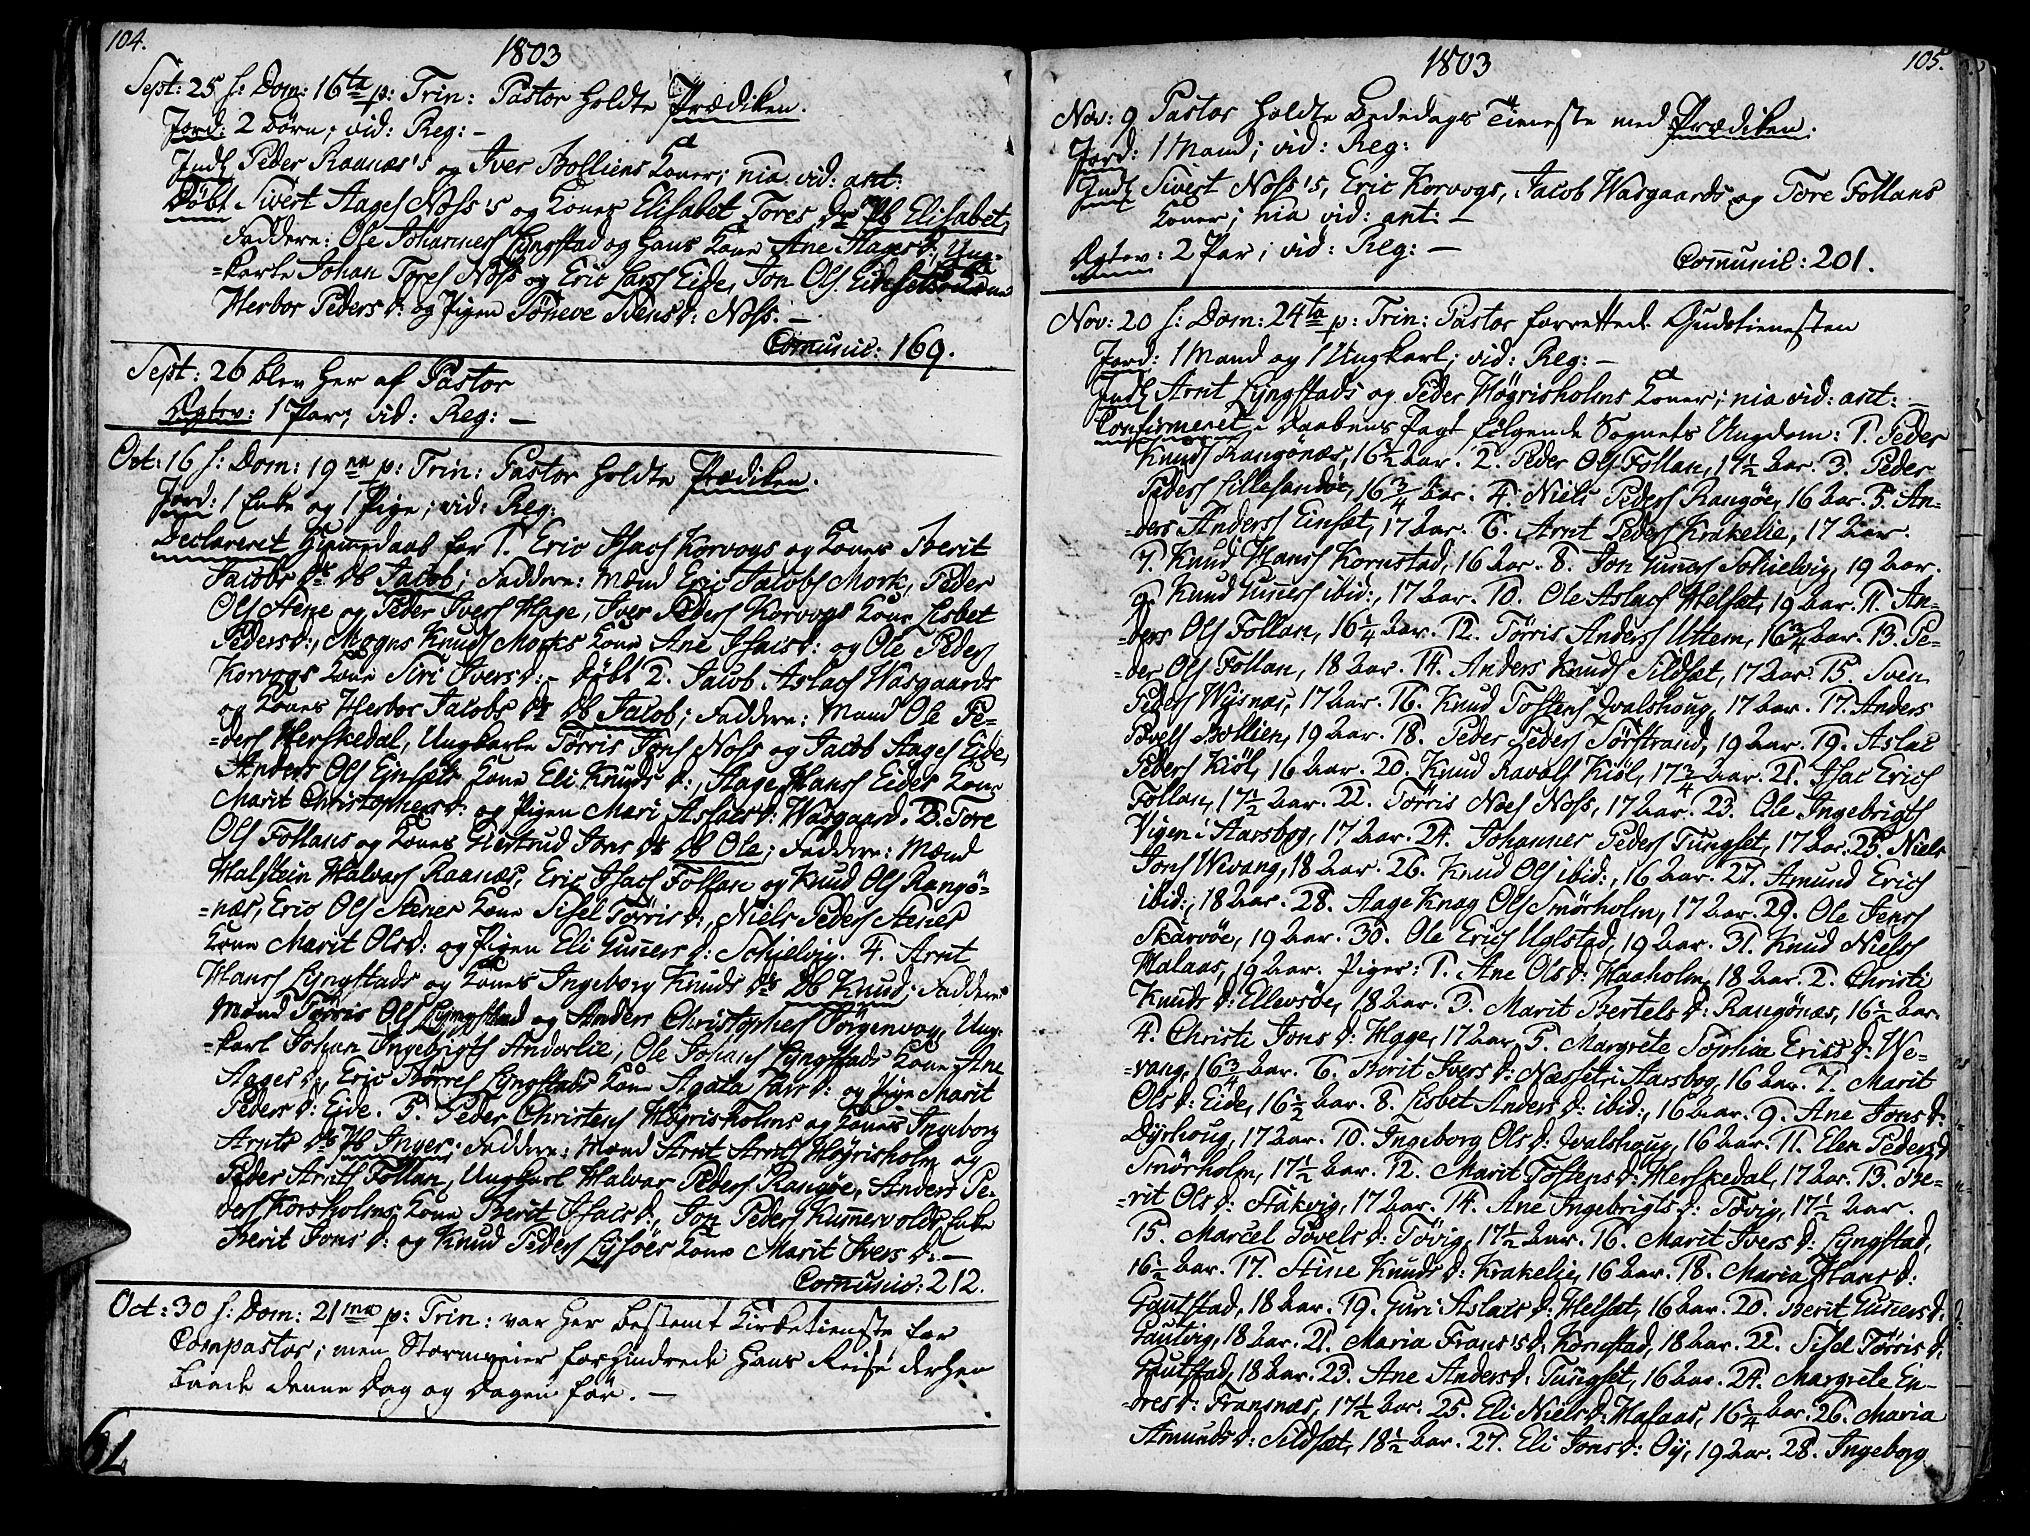 104.
1803
Sept: 25 f: Dom: 16ta p: Trin: Pastor holdte Prædiken.
Jord: 2 Børn; vid: Reg: -
Indl Peder Raanæs's og Iver Bolliens Koner; nia vid: ant:
Døbt Sivert Aages Noss's og Kones Elisabet Tores Dr Db Elisabet,
Faddere: Ole Johannes Lyngstad og hans Kone Ane Aages d:, Ung-
=karle Johan Tores Noss og Eric Lars Eide, Jon Ols
Herbor Peders d: og Pigen Töneve Stens d: Noss. -
Comunic: 169.
Sept: 26 blev her af Pastor
Egtev: 1 Par; vid: Reg: -
Oct: 16 f: Dom: 19na p: Trin: Pastor holdte Prædiken.
Jord: 1 Enke og 1 Pige; vid: Reg:
Declareret Hjemedaab for 1. Eric Isacs Korvogs og Kones Berit
Jacobs Dr Db Jacob; Faddere: Mænd Eric Jacobs Mork, Peder
Ols Stene og Peder Ivers Hage, Iver Peders Korvogs Kone Lisbet
Peders d:, Mogns Knuds Morks Kone Ane Isacs d: og Ole Peders
Korvogs Kone Siri Ivers d: - Døbt 2. Jacob Aslacs Wasgaards
og Kones Herbor Jacobs Dr Db Jacob; Faddere: Mænd Ole Pe-
=ders Herskedal, Ungkarle Törris Jons Noss og Jacob Aages Eide,
Anders Ols Einsæts Kone Eli Knuds d:, Aage Hans Eides Kone
Marit Christophers d: og Pigen Mari Aslacs d: Wasgaard. 3. Tore
Ols Follans og Kones Hertrud Jons Dr Db Ole; Faddere: Mænd
Halstein Halvars Raanæs, Eric Isacs Follan og Knud Ols Rangö-
=næs, Eric Ols Stenes Kone Sisel Törris d:, Niels Peders Stenes
Kone Marit Ols d: og Pigen Eli Guners d: Sohielvig. 4. Arnt
Hans Lyngstads og Kones Ingeborg Knuds Dr Db Knud; Faddere:
Mænd Törris Ols Lyngstad og Anders Christophers Jörgenvog, Ung-
=karl Johan Ingebrigts Anderlie, Ole Johans Lyngstads Kone Ane
Aages d:, Eric Börres Lyngstads Kone Agata Lars d: og Pige Marit
Peders d: Eide. 5. Peder Christens Högrisholms og Kones Ingeborg
Arnts Dr Db Inger; Faddere: Mænd Arnt Arnts Högrisholm og
Peder Arnts Follan, Ungkarl Halvar Peders Rangöe, Anders Pe-
ders Korsholms Kone Berit Isacs d:, Jon Peders Kunnervolds Enke
Berit Jons d: og Knud Peders Lysöes Kone Marit Ivers d: -
Comunic: 212.
Oct: 30 f: Dom: 21ma p: Trin: var her bestemt Kirketieneste for
Compastor; men Stormveier forhindrede hans Reise derhen
baade denne Dag og Dagen før. -
1803
105.
Nov: 9 Pastor holdte Bededags Tieneste med Prædiken.
Jord: 1 Mand; vid: Reg:
Indl Sivert Noss's, Eric Korvogs, Jacob Wasgaards og Tore Follans
Koner; nia vid: ant: -
Egtev: 2 Par; vid: Reg: -
Comunic: 201.
Nov: 20 f: Dom: 24ta p: Trin: Pastor forrettede Gudstienesten
Jord: 1 Mand og 1 Ungkarl; vid: Reg: -
Indl Arnt Lyngstads og Peder Högrisholms Koner; nia vid: ant: -
Confirmeret i Daabens Pagt følgende Sognets Ungdom: 1. Peder
Knuds Rangönæs, 16½ Aar. 2. Peder Ols Follan, 17½ Aar. 3. Peder
Peders Lillesandöe, 16¾ Aar. 4. Niels Peders Rangöe, 16 Aar. 5. An-
=ders Anders Einsæt, 17 Aar. 6. Arnt Peders Krakelie, 17 Aar.
7. Knud Hans Kornstad, 16 Aar. 8. Jon Guners Sohielvig, 19 Aar.
9. Knud Guners ibid:, 17 Aar. 10. Ole Aslacs Helsæt, 19 Aar. 11. An-
ders Ols Follan, 16¼ Aar. 12. Törris Anders Uttem, 16¾ Aar. 13. Pe-
=der Ols Follan, 18 Aar. 14. Anders Knuds Sildsæt, 17 Aar. 15. Sven
Peders Wysnæs, 17 Aar. 16. Knud Tostens Walshoug, 17 Aar. 17. Anders
Povels Bollien, 19 Aar. 18. Peder Peders Törstrand, 19 Aar. 19. Aslac
Peders Kiöl, 16 Aar. 20. Knud Ravals Kiöl, 17¾ Aar. 21. Isac Erics
Follan, 17½ Aar. 22. Törris Noes Noss, 17 Aar. 23. Ole Ingebrigts
Vigen i Aarsbog, 17 Aar. 24. Johannes Peders Tungset, 17 Aar. 25. Niels
Jons Wevang, 18 Aar. 26. Knud Ols ibid:, 16 Aar. 27. Amund Erics
ibid:, 18 Aar. 28. Aage Knag Ols Smörholm, 17 Aar. 29. Ole Jens
Skarvöe, 19 Aar. 30. Ole Erics Uglstad, 19 Aar. 31. Knud Niels
Halaas, 19 Aar. Piger: 1. Ane Ols d: Haaholm, 18 Aar. 2. Christi
Knuds d: Ellevsöe, 18 Aar. 3. Marit Bertels d: Rangönæs, 16½ Aar.
4. Christi Jons d: Hgge, 17 Aar. 5. Margrete Sophia Erics d: We-
=vang, 16¾ Aar. 6. Berit Ivers d: Næsset i Aarsbog, 16 Aar. 7. Marit
Ols d: Eide, 16½ Aar. 8. Lisbet Anders d: ibid:, 16 Aar. 9. Ane Jons d:
Dyrhoug, 17 Aar. 10. Ingeborg Ols d: Walshoug, 16 Aar. 11. Elen Peders d:
Smörholm, 17½ Aar. 12. Marit Tostens d: Herskedal, 17 Aar. 13. Be-
=rit Ols d: Stakvig, 17 Aar. 14. Ane Ingebrigts d: Tövig, 17½ Aar.
15. Marcel Povels d: Tövig, 17½ Aar. 16. Marit Ivers d: Lyngstad,
16½ Aar. 17. Stine Knuds d: Krakelie, 16 Aar. 18. Maria Hans d:
Gautstad, 18 Aar. 19. Guri Aslacs d: Helsæt, 16 Aar. 20. Berit Guners d:
Gautvig, 18 Aar. 21. Maria Frans's d: Kornstad, 18 Aar. 22. Sisel Törris d:
Gautstad, 18 Aar. 23. Ane Anders d: Tungset, 16 Aar. 24. Margrete En-
dres d: Fransnæs, 17½ Aar. 25. Eli Niels d: Halaas, 16¼ Aar. 26. Maria
Amunds d: Sildsæt, 18½ Aar. 27. Eli Jons d: Oy, 19 Aar. 28. Ingeborg